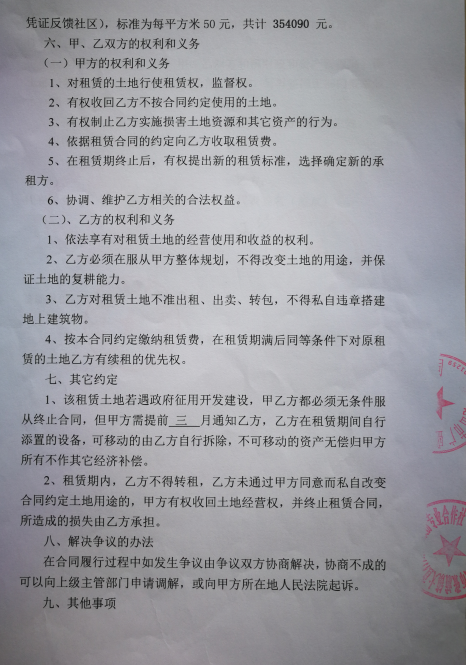 凭证反馈社区），标准为每平方米 50 元，共计 354090 元。
六、甲、乙双方的权利和义务
（一）甲方的权利和义务
1、对租赁的土地行使租赁权，监督权。
2、有权收回乙方不按合同约定使用的土地。
3、有权制止乙方实施损害土地资源和其它资产的行为。
4、依据租赁合同的约定向乙方收取租赁费。
5、在租赁期终止后，有权提出新的租赁标准，选择确定新的承
租方。
6、协调、维护乙方相关的合法权益。
（二）、乙方的权利和义务
1、依法享有对租赁土地的经营使用和收益的权利。
2、乙方必须在服从甲方整体规划，不得改变土地的用途，并保
证土地的复耕能力。
3、乙方对租赁土地不准出租、出卖、转包，不得私自违章搭建
地上建筑物。
4、按本合同约定缴纳租赁费，在租赁期满后同等条件下对原租
赁的土地乙方有续租的优先权。
七、其它约定
1、该租赁土地若遇政府征用开发建设，甲乙方都必须无条件服
从终止合同，但甲方需提前 三 月通知乙方，乙方在租赁期间自行
添置的设备，可移动的由乙方自行拆除，不可移动的资产无偿归甲方
所有不作其它经济补偿。
2、租赁期内，乙方不得转租，乙方未通过甲方同意而私自改变
合同约定土地用途的，甲方有权收回土地经营权，并终止租赁合同，
所造成的损失由乙方承担。
八、解决争议的办法
在合同履行过程中如发生争议由争议双方协商解决，协商不成的
可以向上级主管部门申请调解，或向甲方所在地人民法院起诉。
九、其他事项